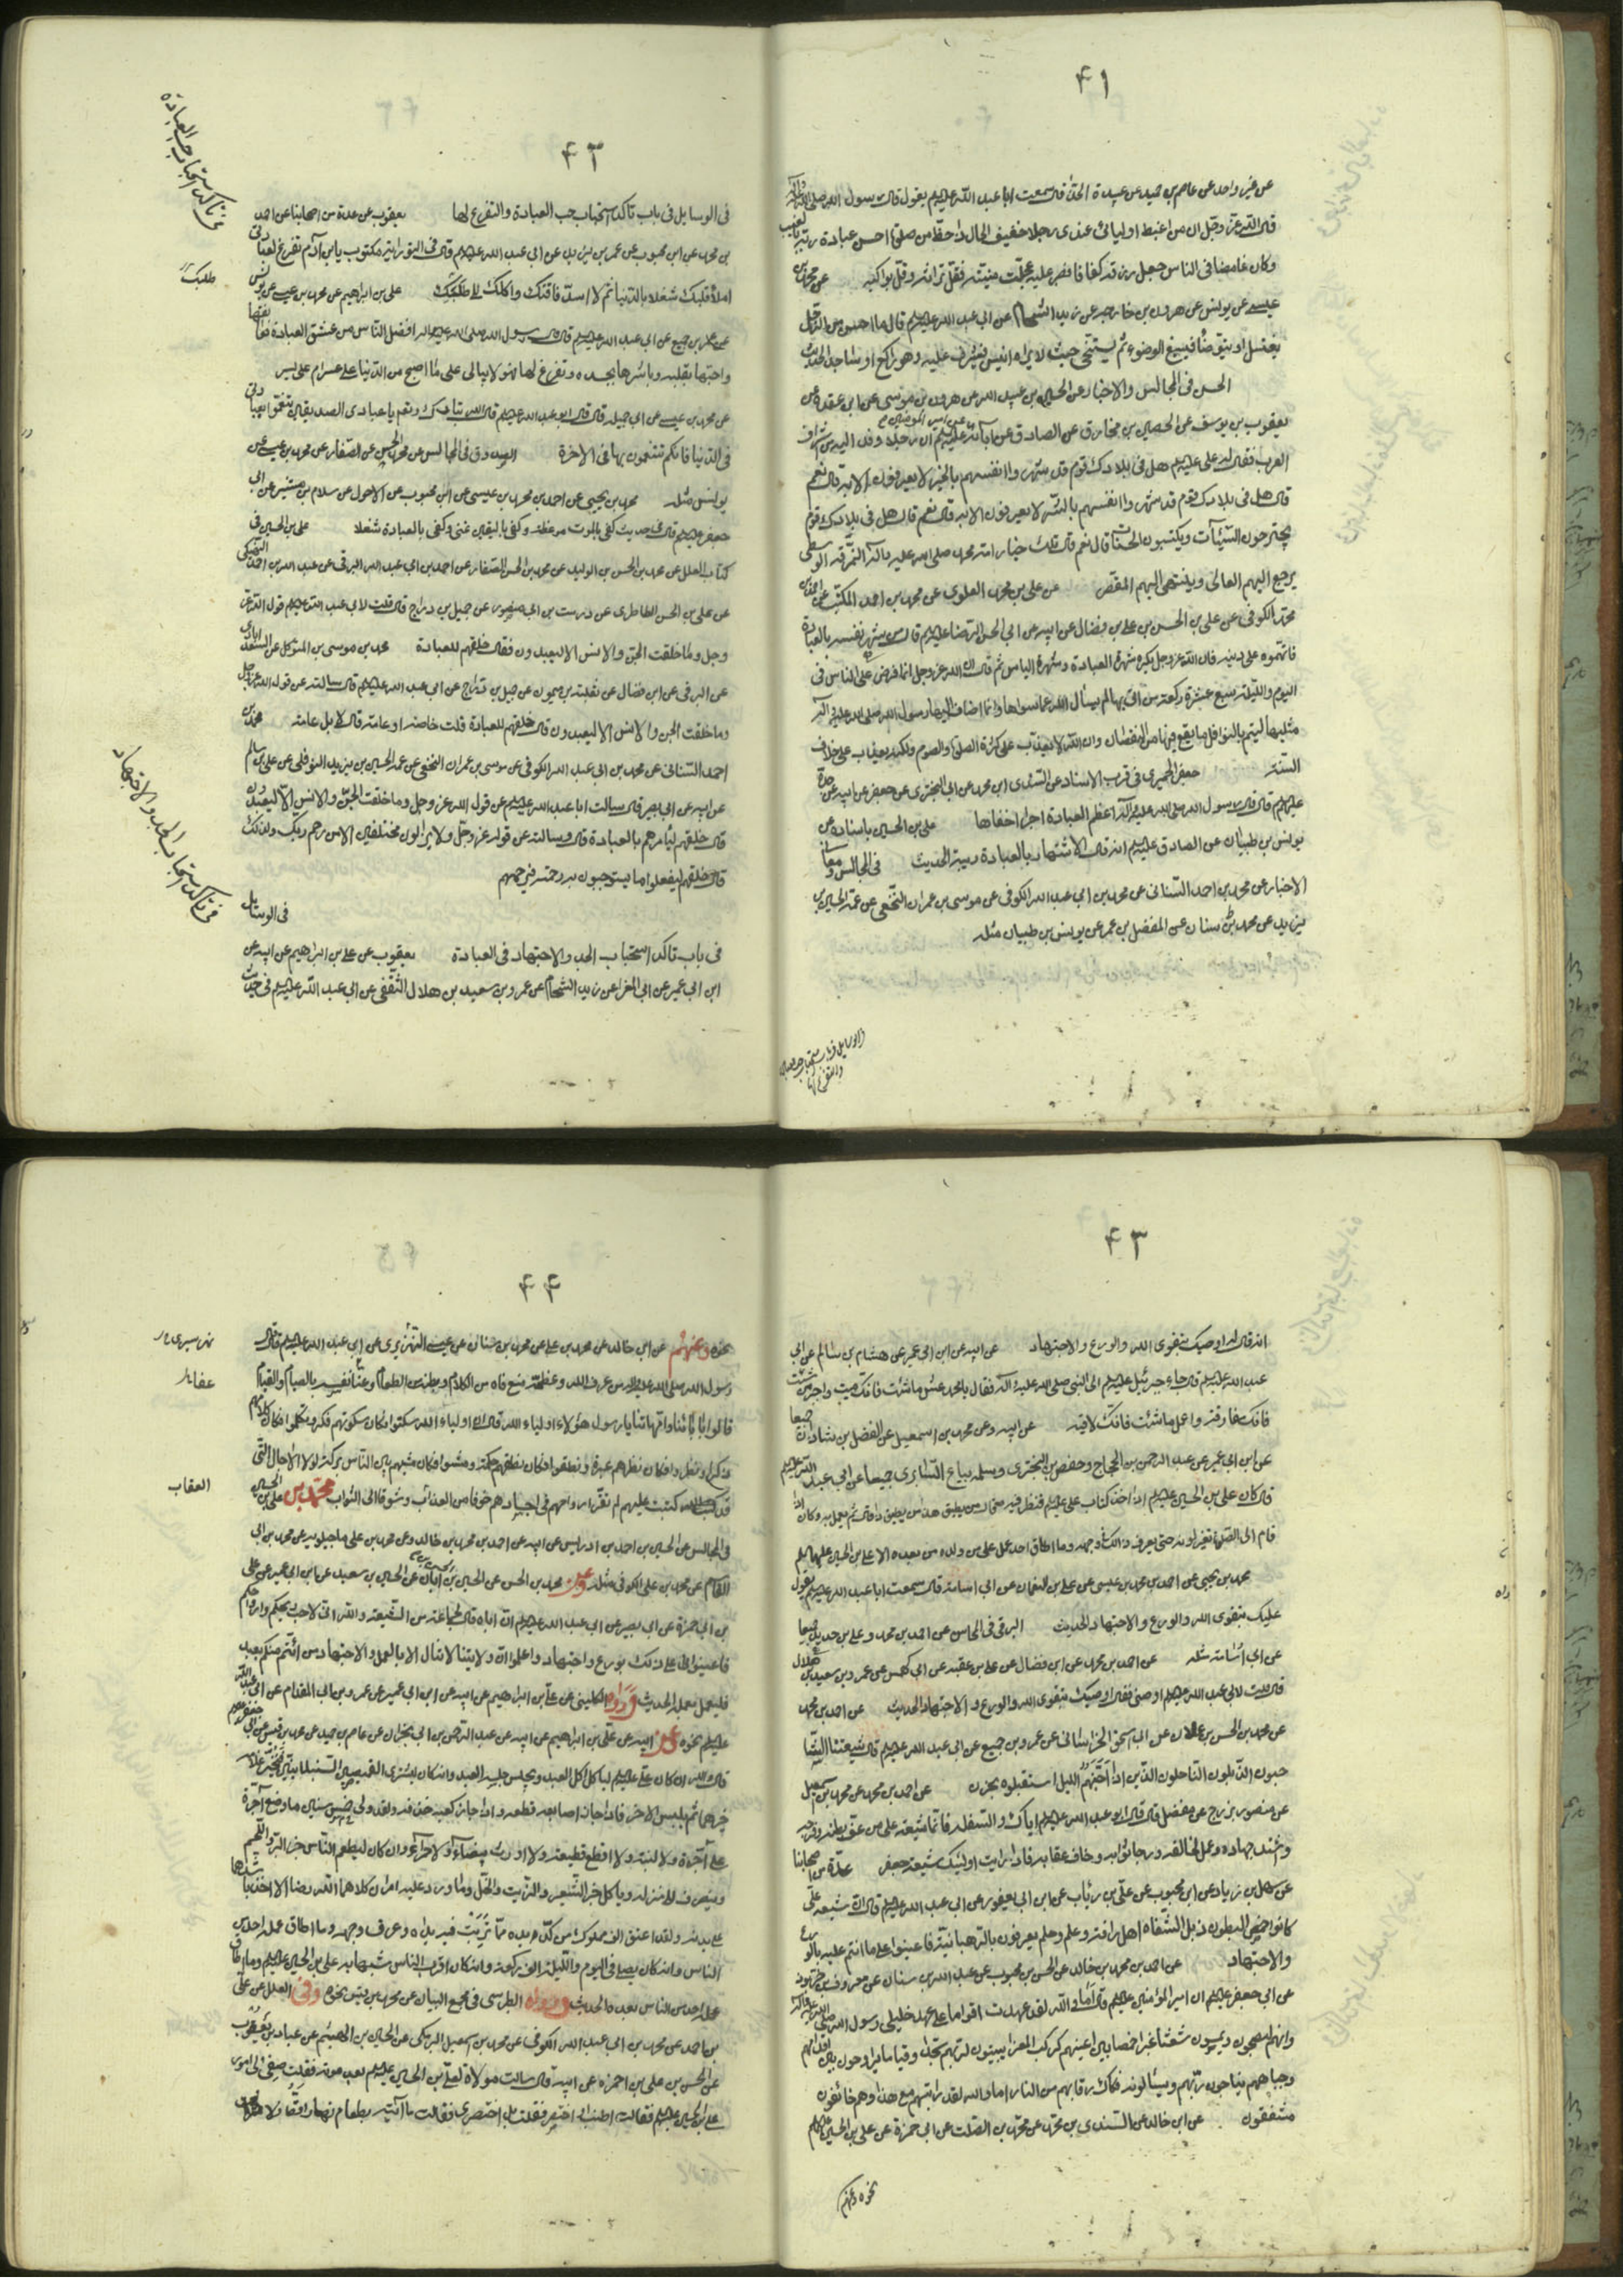 ۴۱
عن غير واحد عن عاصم بن حميد عن ابي عبيدة الحذاء قال سمعت ابا عبد الله عليه السلم يقول قال رسول الله صلى الله عليه وآله
قال الله عز وجل ان من اغبط اوليائي عندي رجلا خفيف الحال ذا حظ من صلوة احسن عبادة ربه بالغيب
وكان غامضا في الناس جعل رزقه كفافا فصبر عليه عجلت منيته فقل تراثه وقلت بواكيه عن محمد بن
عيسى عن يونس عن هرون بن خارجه عن زيد الشحام عن ابي عبد الله عليه السلم قال ما احسن من الرجل
يغتسل او يتوضأ فيسبغ الوضوء ثم يتنحى حيث لا يراه انيس فيشرف عليه وهو راكع او ساجد الحديث
الحسن في المجالس والاخبار عن الحسين بن عبيد الله عن هرون بن موسى عن ابن عقدة عن
يعقوب بن يوسف عن الحصين بن مخارق عن الصادق عن آبائه عليهم السلم ان رجلا وفد اليه من اشراف
العرب فقال له علي عليه السلم هل في بلادك قوم قد شهروا انفسهم بالخير لا يعرفون الا به قال نعم
قال هل في بلادك قوم قد شهروا انفسهم بالشر لا يعرفون الا به قال نعم قال هل في بلادك قوم
يجترحون السيئات ويكتسبون الحسنات قال نعم قال تلك خيار امة محمد صلى الله عليه وآله النمرقة الوسطى
يرجع اليهم الغالي وينتهي اليهم المقصر عن علي بن محمد العلوي عن محمد بن احمد المكتب عن احمد بن
محمد الكوفي عن علي بن الحسن بن علي بن فضال عن ابيه عن ابي الحسن الرضا عليه السلم قال من شهر نفسه بالعبادة
فاتهموه على دينه فان الله عز وجل يكره شهرة العبادة وشهرة اللباس ثم قال ان الله عز وجل انما فرض على الناس في
اليوم والليلة سبع عشرة ركعة من اتى بها لم يسأل الله عما سواها وانما اضاف اليها رسول الله صلى الله عليه وآله
مثليها ليتم بالنوافل ما يقع فيها من النقصان وان الله لا يعذب على كثرة الصلوة والصوم ولكنه يعذب على خلاف
السنة جعفر الحميري في قرب الاسناد عن السندي ابن محمد عن ابي البختري عن جعفر عن ابيه عن جده
عليهم السلم قال قال رسول الله صلى الله عليه وآله اعظم العبادة اجرا اخفاها علي بن الحسين باسناده عن
يونس بن ظبيان عن الصادق عليه السلم انه قال الاشتهار بالعبادة ريبة الحديث في المجالس ومعاني
الاخبار عن محمد بن احمد السناني عن محمد بن ابي عبد الله الكوفي عن موسى بن عمران النخعي عن عمه الحسين بن
يزيد عن محمد بن سنان عن المفضل بن عمر عن يونس بن ظبيان مثله
۴۲
في تاكد استحباب حب العبادة
في الوسايل في باب تاكد استحباب حب العبادة والتفرغ لها يعقوب عن عدة من اصحابنا عن احمد
بن محمد عن ابن محبوب عن عمر بن يزيد عن ابي عبد الله عليه السلم قال في التورية مكتوب يابن آدم تفرغ لعبادتي
املأ قلبك شغلا بالدنيا ثم لا اسد فاقتك واكلك الى طلبك علي بن ابراهيم عن محمد بن عيسى عن يونس
عن عمرو بن جميع عن ابي عبد الله عليه السلم قال قال رسول الله صلى الله عليه وآله افضل الناس من عشق العبادة فعانقها
واحبها بقلبه وباشرها بجسده وتفرغ لها فهو لا يبالي على ما اصبح من الدنيا على عسر ام على يسر
عن محمد بن عيسى عن ابي جميله قال قال ابو عبد الله عليه السلم قال الله تبارك وتعالى يا عبادي الصديقين تنعموا بعبادتي
في الدنيا فانكم تتنعمون بها في الاخرة الصدوق في المجالس عن محمد بن الحسن عن الصفار عن محمد بن عيسى عن
يونس مثله محمد بن يحيى عن احمد بن محمد بن عيسى عن ابن محبوب عن الاحول عن سلام بن المستنير عن ابي
جعفر عليه السلم قال في حديث كفى بالموت موعظة وكفى باليقين غنى وكفى بالعبادة شغلا علي بن الحسين في
كتاب العلل عن محمد بن الحسن بن الوليد عن محمد بن الحسن الصفار عن احمد بن ابي عبد الله البرقي عن عبد الله بن احمد النهيكي
عن علي بن الحسن الطاطري عن درست بن ابي منصور عن جميل بن دراج قال قلت لابي عبد الله عليه السلم قول الله عز
وجل وما خلقت الجن والانس الا ليعبدون فقال خلقهم للعبادة محمد بن موسى بن المتوكل عن السعدآبادي
عن البرقي عن ابن فضال عن ثعلبة بن ميمون عن جميل بن دراج عن ابي عبد الله عليه السلم قال سالته عن قول الله عز وجل
وما خلقت الجن والانس الا ليعبدون قال خلقهم للعبادة قلت خاصة او عامة قال لا بل عامة محمد بن
احمد السناني عن محمد بن ابي عبد الله الكوفي عن موسى بن عمران النخعي عن عمه الحسين بن يزيد النوفلي عن علي بن سالم
عن ابيه عن ابي بصير قال سالت ابا عبد الله عليه السلم عن قول الله عز وجل وما خلقت الجن والانس الا ليعبدون
قال خلقهم ليأمرهم بالعبادة قال وسالته عن قوله عز وجل ولا يزالون مختلفين الا من رحم ربك ولذلك
خلقهم قال خلقهم ليفعلوا ما يستوجبون به رحمته فيرحمهم
في الوسايل
في باب تاكد استحباب الجد والاجتهاد في العبادة يعقوب عن علي بن ابراهيم عن ابيه عن
ابن ابي عمير عن ابي المغرا عن زيد الشحام عن عمرو بن سعيد بن هلال الثقفي عن ابي عبد الله عليه السلم في حديث
في تاكد استحباب الجد والاجتهاد
۴۳
انه قال له اوصيك بتقوى الله والورع والاجتهاد عن ابيه عن ابن ابي عمير عن هشام بن سالم عن ابي
عبد الله عليه السلم قال جاء جبرئيل عليه السلم الى النبي صلى الله عليه وآله فقال يا محمد عش ما شئت فانك ميت واحبب من شئت
فانك مفارقه واعمل ما شئت فانك لاقيه عن ابيه وعن محمد بن اسمعيل عن الفضل بن شاذان جميعا
عن ابن ابي عمير عن عبد الرحمن بن الحجاج وحفص بن البختري وسلمه بياع السابري جميعا عن ابي عبد الله عليه السلم
قال كان علي بن الحسين عليه السلم اذا اخذ كتاب علي عليه السلم فنظر فيه قال من يطيق هذا من يطيق ذا قال ثم يعمل به وكان اذا
قام الى الصلوة تغير لونه حتى يعرف ذلك في وجهه وما اطاق احد عمل علي من ولده من بعده الا علي بن الحسين عليهما السلم
محمد بن يحيى عن احمد بن محمد بن عيسى عن علي بن النعمان عن ابي اسامة قال سمعت ابا عبد الله عليه السلم يقول
عليك بتقوى الله والورع والاجتهاد الحديث البرقي في المحاسن عن احمد بن محمد وعلي بن حديد جميعا
عن ابي اسامة مثله عن احمد بن محمد عن ابن فضال عن علي بن عقبه عن ابي كهمس عن عمرو بن سعيد بن هلال
قال قلت لابي عبد الله عليه السلم اوصني فقال اوصيك بتقوى الله والورع والاجتهاد الحديث عن احمد بن محمد
عن محمد بن الحسن بن علان عن ابي اسحق الخراساني عن عمرو بن جميع عن ابي عبد الله عليه السلم قال شيعتنا الشا
حبون الذابلون الناحلون الذين اذا جنهم الليل استقبلوه بحزن عن احمد بن محمد عن محمد بن اسمعيل
عن منصور بزرج عن مفضل قال قال ابو عبد الله عليه السلم اياك والسفلة فانما شيعة علي من عف بطنه وفرجه
واشتد جهاده وعمل لخالقه ورجا ثوابه وخاف عقابه فاذا رايت اولئك فاولئك شيعة جعفر عدة من اصحابنا
عن سهل بن زياد عن ابن محبوب عن علي بن رئاب عن ابن ابي يعفور عن ابي عبد الله عليه السلم قال ان شيعة علي
كانوا خمص البطون ذبل الشفاه اهل رافة وعلم وحلم يعرفون بالرهبانية فاعينوا على ما انتم عليه بالورع
والاجتهاد عن احمد بن محمد بن خالد عن الحسن بن محبوب عن عبد الله بن سنان عن معروف بن خربوذ
عن ابي جعفر عليه السلم ان امير المؤمنين عليه السلم قال اما والله لقد عهدت اقواما على عهد خليلي رسول الله صلى الله عليه وآله
وانهم ليصبحون ويمسون شعثا غبرا خمصا بين اعينهم كركب المعزا يبيتون لربهم سجدا وقياما يراوحون بين اقدامهم
وجباههم يناجون ربهم ويسالونه فكاك رقابهم من النار اما والله لقد رايتهم مع هذا وهم خائفون
مشفقون عن ابن خالد عن السندي بن محمد عن محمد بن الصلت عن ابي حمزة عن علي بن الحسين عليهما السلم
نحوه وعنهم
۴۴
نحوه وعنهم عن ابن خالد عن محمد بن علي عن محمد بن سنان عن عيسى النهريري عن ابي عبد الله عليه السلم قال قال
رسول الله صلى الله عليه وآله من عرف الله وعظمه منع فاه من الكلام وبطنه من الطعام وعنا نفسه بالصيام والقيام
قالوا بابائنا وامهاتنا يا رسول الله هؤلاء اولياء الله قال ان اولياء الله سكتوا فكان سكوتهم فكرا وتكلموا فكان كلامهم
ذكرا ونظروا فكان نظرهم عبرة ونطقوا فكان نطقهم حكمة ومشوا فكان مشيهم بين الناس بركة لولا الاجال التي
قد كتبت عليهم لم تقر ارواحهم في اجسادهم خوفا من العذاب وشوقا الى الثواب محمد بن علي بن الحسين
العقاب
في المجالس عن الحسين بن احمد بن ادريس عن ابيه عن احمد بن محمد بن خالد وعن محمد بن علي ماجيلويه عن محمد بن ابي
القاسم عن محمد بن علي الكوفي مثله وعن محمد بن الحسن عن الحسين بن الحسن بن ابان عن الحسين بن سعيد عن ابن ابي عمير عن علي
بن ابي حمزة عن ابي بصير عن ابي عبد الله عليه السلم ان اباه قال لجماعة من الشيعة والله اني لاحب ريحكم وارواحكم
فاعينوا على ذلك بورع واجتهاد واعلموا ان ولايتنا لا تنال الا بالعمل والاجتهاد من ائتم منكم بعبد
فليعمل بعمله الحديث ورواه الكليني عن علي بن ابراهيم عن ابيه عن ابن ابي عمير عن عمرو بن ابي المقدام عن ابي عبد الله
عليه السلم نحوه وعن ابيه عن علي بن ابراهيم عن ابيه عن عبد الرحمن بن ابي نجران عن عاصم بن حميد عن محمد بن قيس عن ابي جعفر عليه السلم
قال والله ان كان علي عليه السلم لياكل اكل العبد ويجلس جلسة العبد وان كان ليشتري القميصين السنبلانيين فيخير غلامه
خيرهما ثم يلبس الاخر فاذا جاز اصابعه قطعه واذا جاز كعبيه حذفه ولقد ولي خمس سنين ما وضع آجرة
على آجرة ولا لبنة على لبنة ولا اقطع قطيعة ولا اورث بيضاء ولا حمراء وان كان ليطعم الناس خبز البر واللحم
وينصرف الى منزله وياكل خبز الشعير والزيت والخل وما ورد عليه امران كلاهما لله رضا الا اخذ باشدهما
على بدنه ولقد اعتق الف مملوك من كد يده تربت فيه يداه وعرق وجهه وما اطاق عمله احد من
الناس وان كان ليصلي في اليوم والليلة الف ركعة وان كان اقرب الناس شبها به علي بن الحسين عليه السلم وما اطاق
عمله احد من الناس بعده الحديث ورواه الطبرسي في مجمع البيان عن محمد بن قيس نحوه وفي العلل عن علي
بن احمد عن محمد بن ابي عبد الله الكوفي عن محمد بن اسمعيل البرمكي عن الحسين بن الهيثم عن عباد بن يعقوب
عن الحسن بن علي بن ابي حمزه عن ابيه قال سالت مولاة لعلي بن الحسين عليه السلم بعد موته فقلت صفي لي امور
علي بن الحسين عليه السلم فقالت اطنب او اختصر فقلت بل اختصري فقالت ما اتيته بطعام نهارا قط ولا